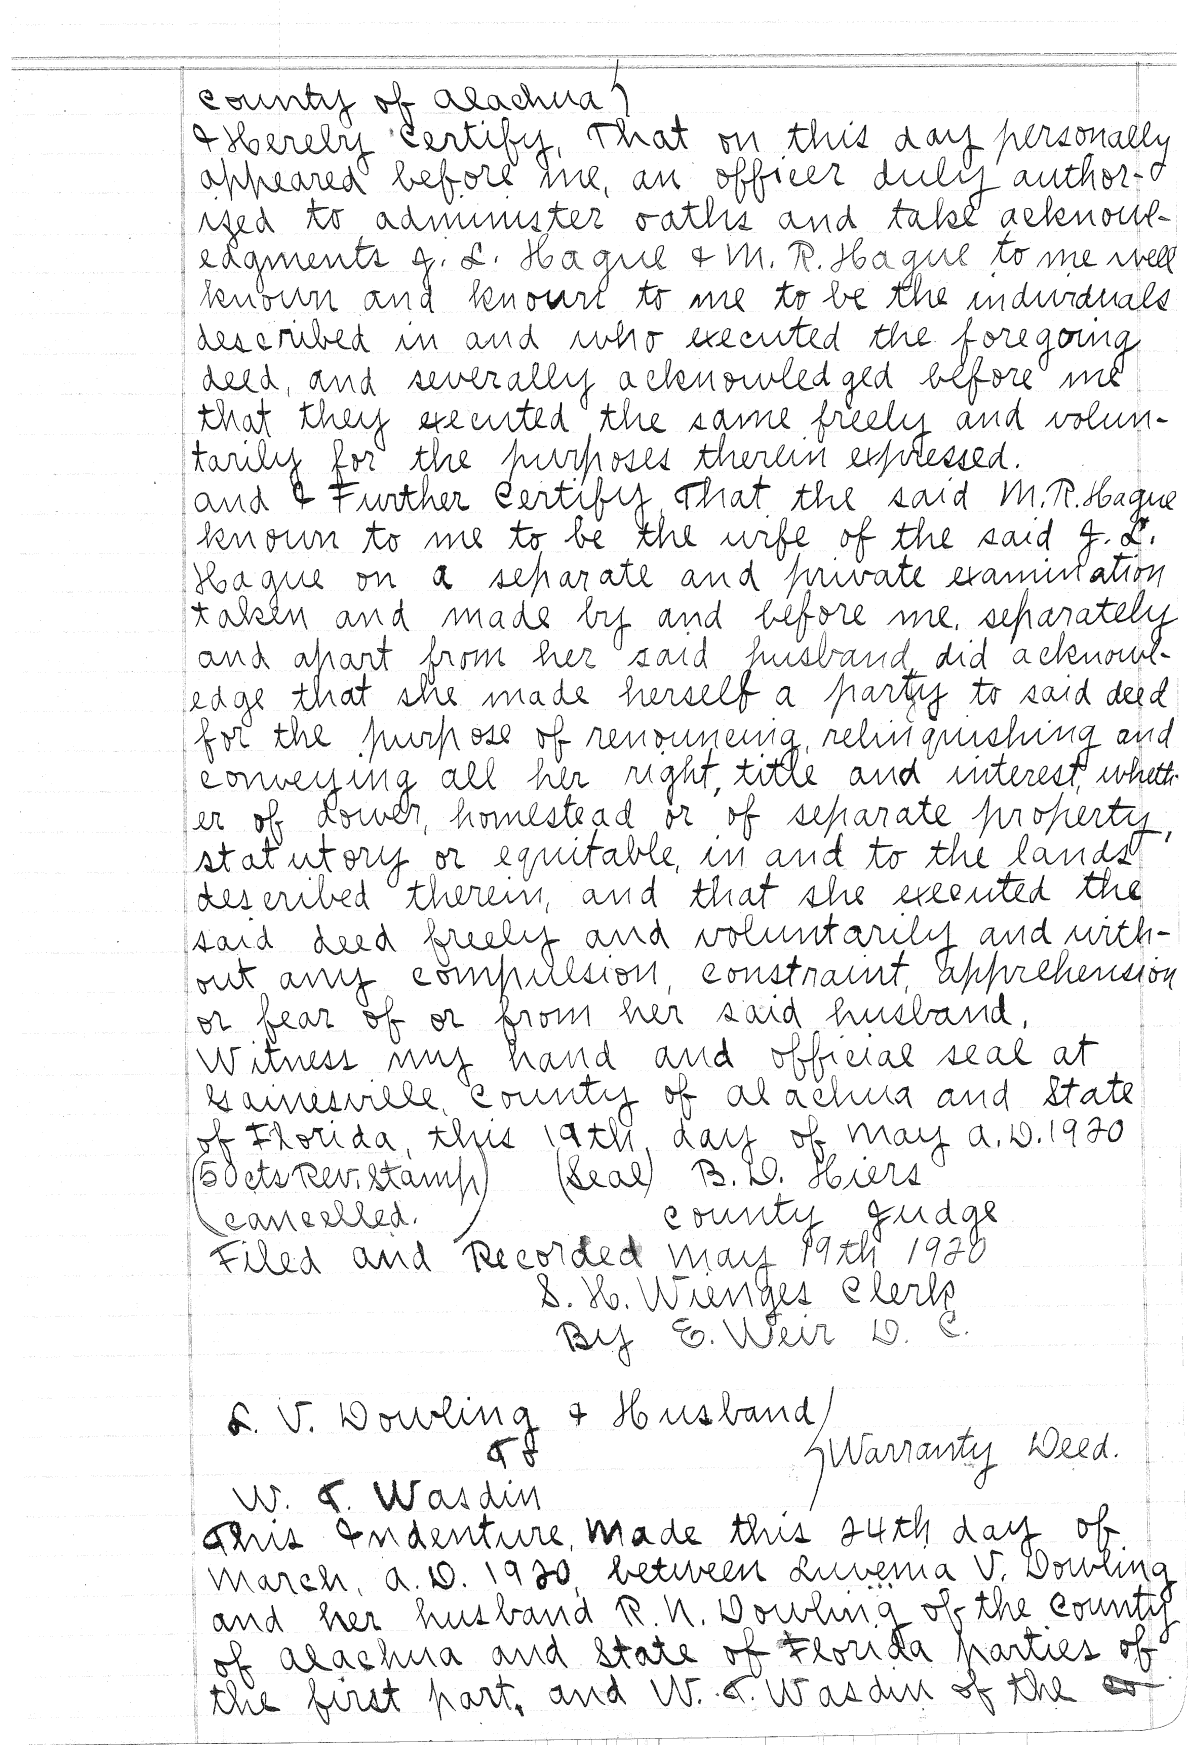 County of Alachua)
I Hereby Certify, That on this day personally
appeared before me, an officer duly author-
ized to administer oaths and take acknowl-
edgments J. L. Hague & M. R. Hague to me well
known and known to me to be the individuals
described in and who executed the foregoing
deed, and severally acknowledged before me
that they executed the same freely and volun-
tarily for the purposes therein expressed.
And I Further Certify, That the said M. R. Hague
known to me to be the wife of the said J. L.
Hague on a separate and private examination
taken and made by and before me, separately
and apart from her said husband, did acknowl-
edge that she made herself a party to said deed
for the purpose of renouncing, relinquishing and
conveying all her right, title and interest, wheth-
er of dower, homestead or of separate property,
statutory or equitable, in and to the lands
described therein, and that she executed the
said deed freely and voluntarily and with-
out any compulsion, constraint, apprehension
or fear of or from her said husband.
Witness my hand and official seal at
Gainesville, County of Alachua and State
of Florida, this 19th, day of May A.D. 1920
(50cts Rev. Stamp) (Seal) B. D. Hiers
(cancelled.) County Judge
Filed and Recorded May 19th 1920
S. H. Wienges Clerk
By E. Weir D. C.
L. V. Dowling & Husband)
To
) Warranty Deed.
W. T. Wasdin
This Indenture, Made this 24th day of
March, A.D. 1920, between Luvenia V. Dowling
and her husband R. N. Dowling of the County
of Alachua and State of Florida parties of
the first part, and W. T. Wasdin of the